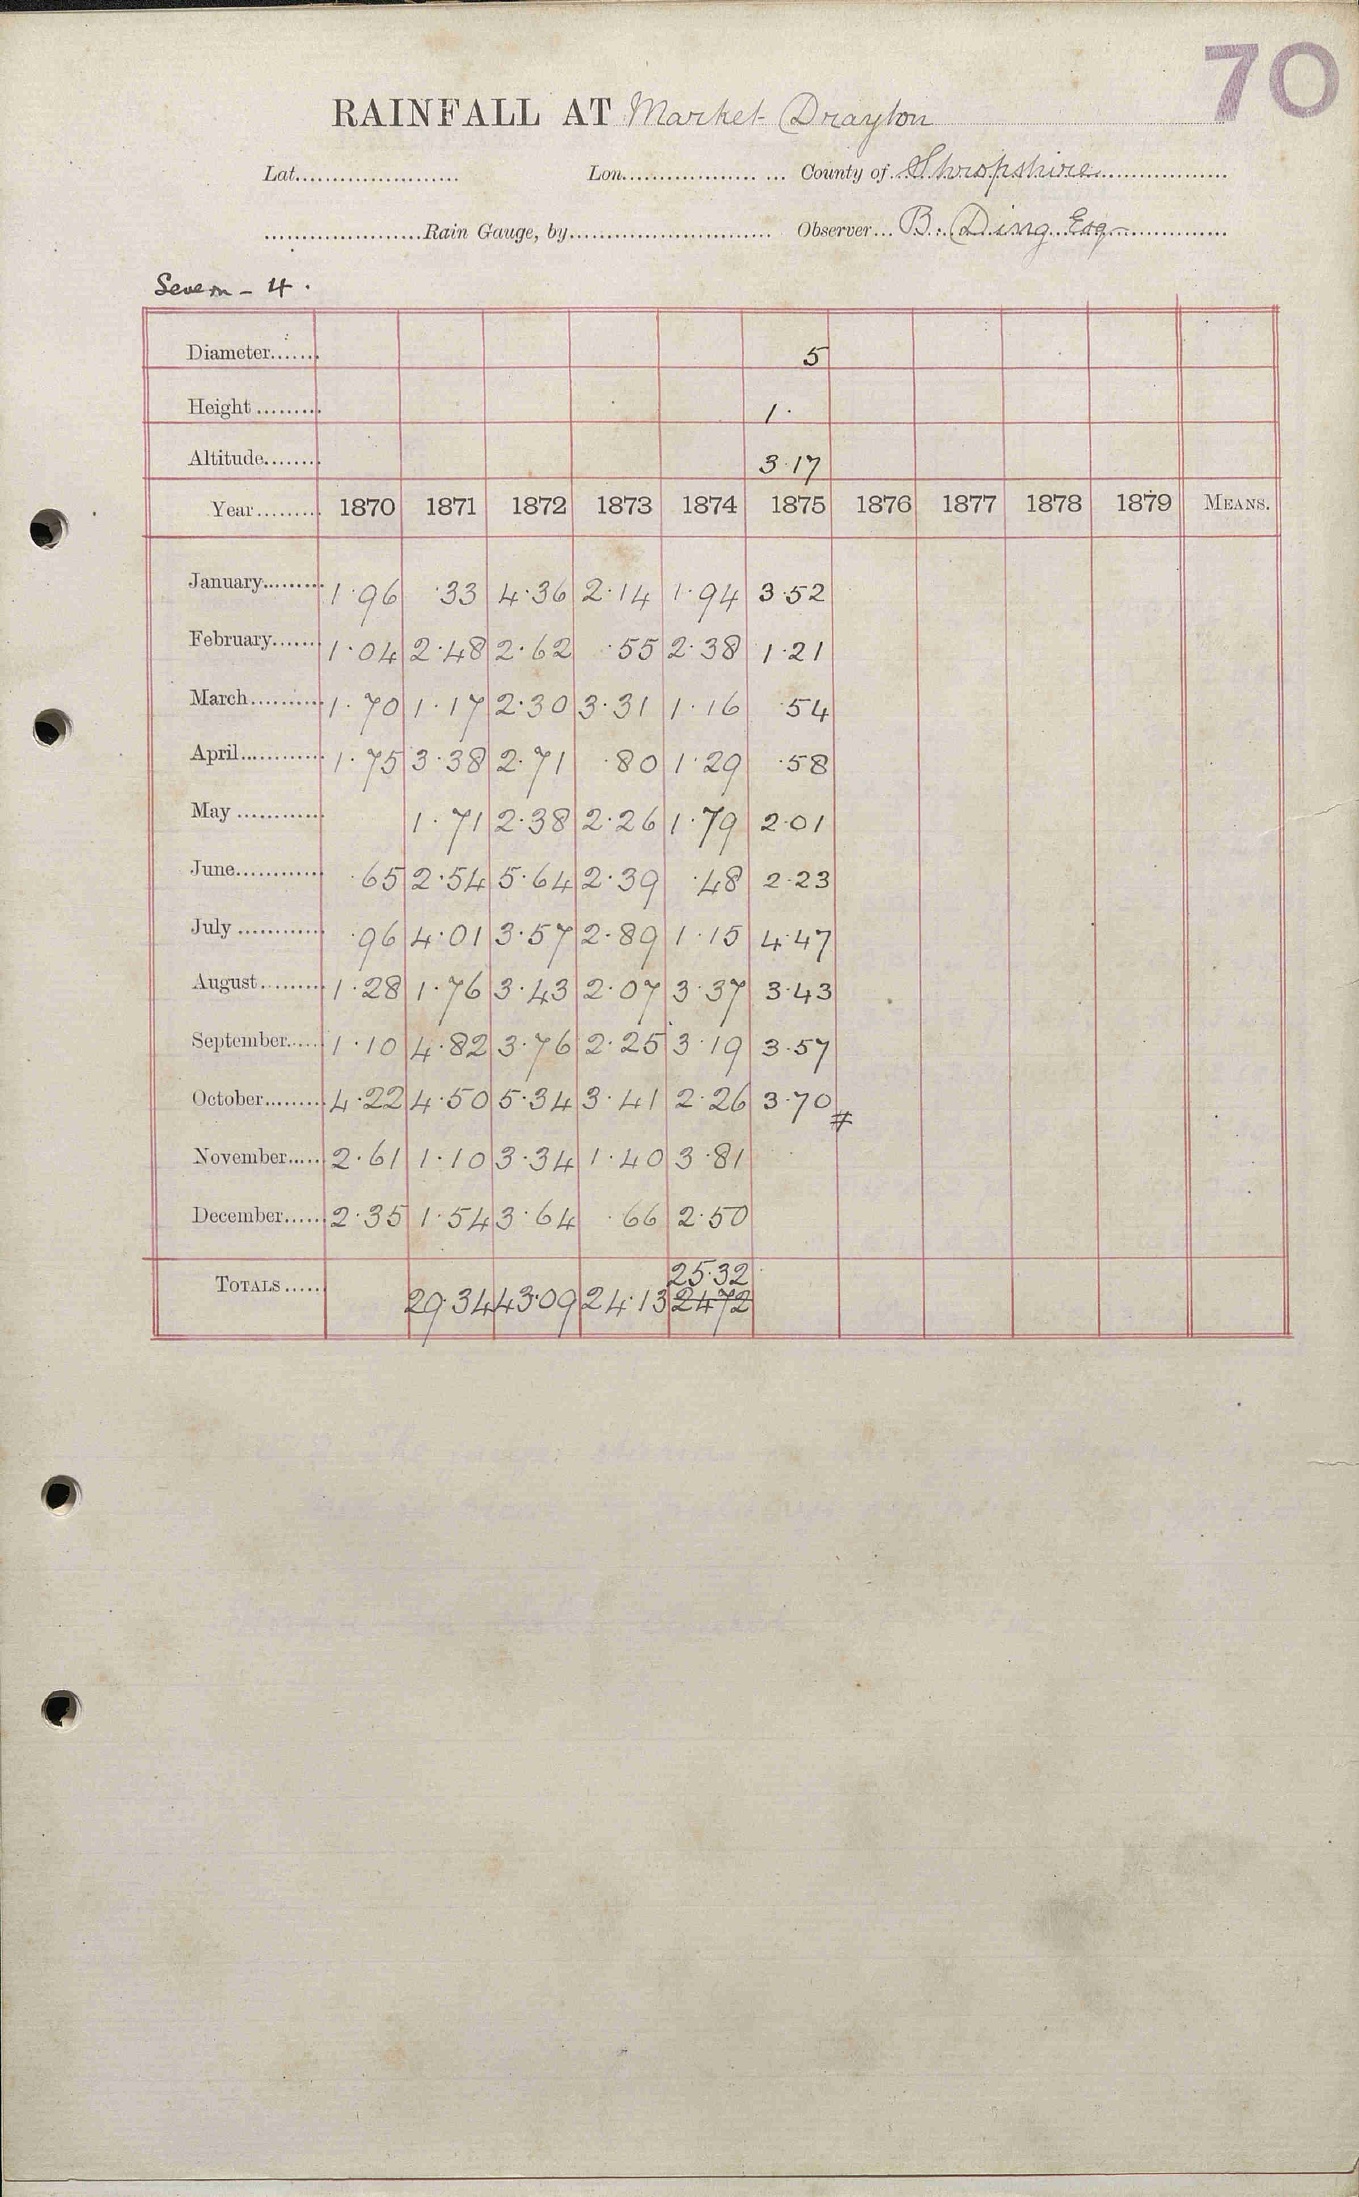 70
RAINFALL AT Market Drayton
Lat. Lon. County of Shropshire
Rain Gauge, by Observer B. Ding Esq
Severn - 4.
Diameter 5
Height 1.
Altitude 3.17
Year 1870 1871 1872 1873 1874 1875 1876 1877 1878 1879 MEANS.
January 1.96 .33 4.36 2.14 1.94 3.52
February 1.04 2.48 2.62 .55 2.38 1.21
March 1.70 1.17 2.30 3.31 1.16 .54
April 1.75 3.38 2.71 .80 1.29 .58
May 1.71 2.38 2.26 1.79 2.01
June .65 2.54 5.64 2.39 .48 2.23
July .96 4.01 3.57 2.89 1.15 4.47
August 1.28 1.76 3.43 2.07 3.37 3.43
September 1.10 4.82 3.76 2.25 3.19 3.57
October 4.22 4.50 5.34 3.41 2.26 3.70 #
November 2.61 1.10 3.34 1.40 3.81
December 2.35 1.54 3.64 .66 2.50
25.32
TOTALS 29.34 43.09 24.13 2472